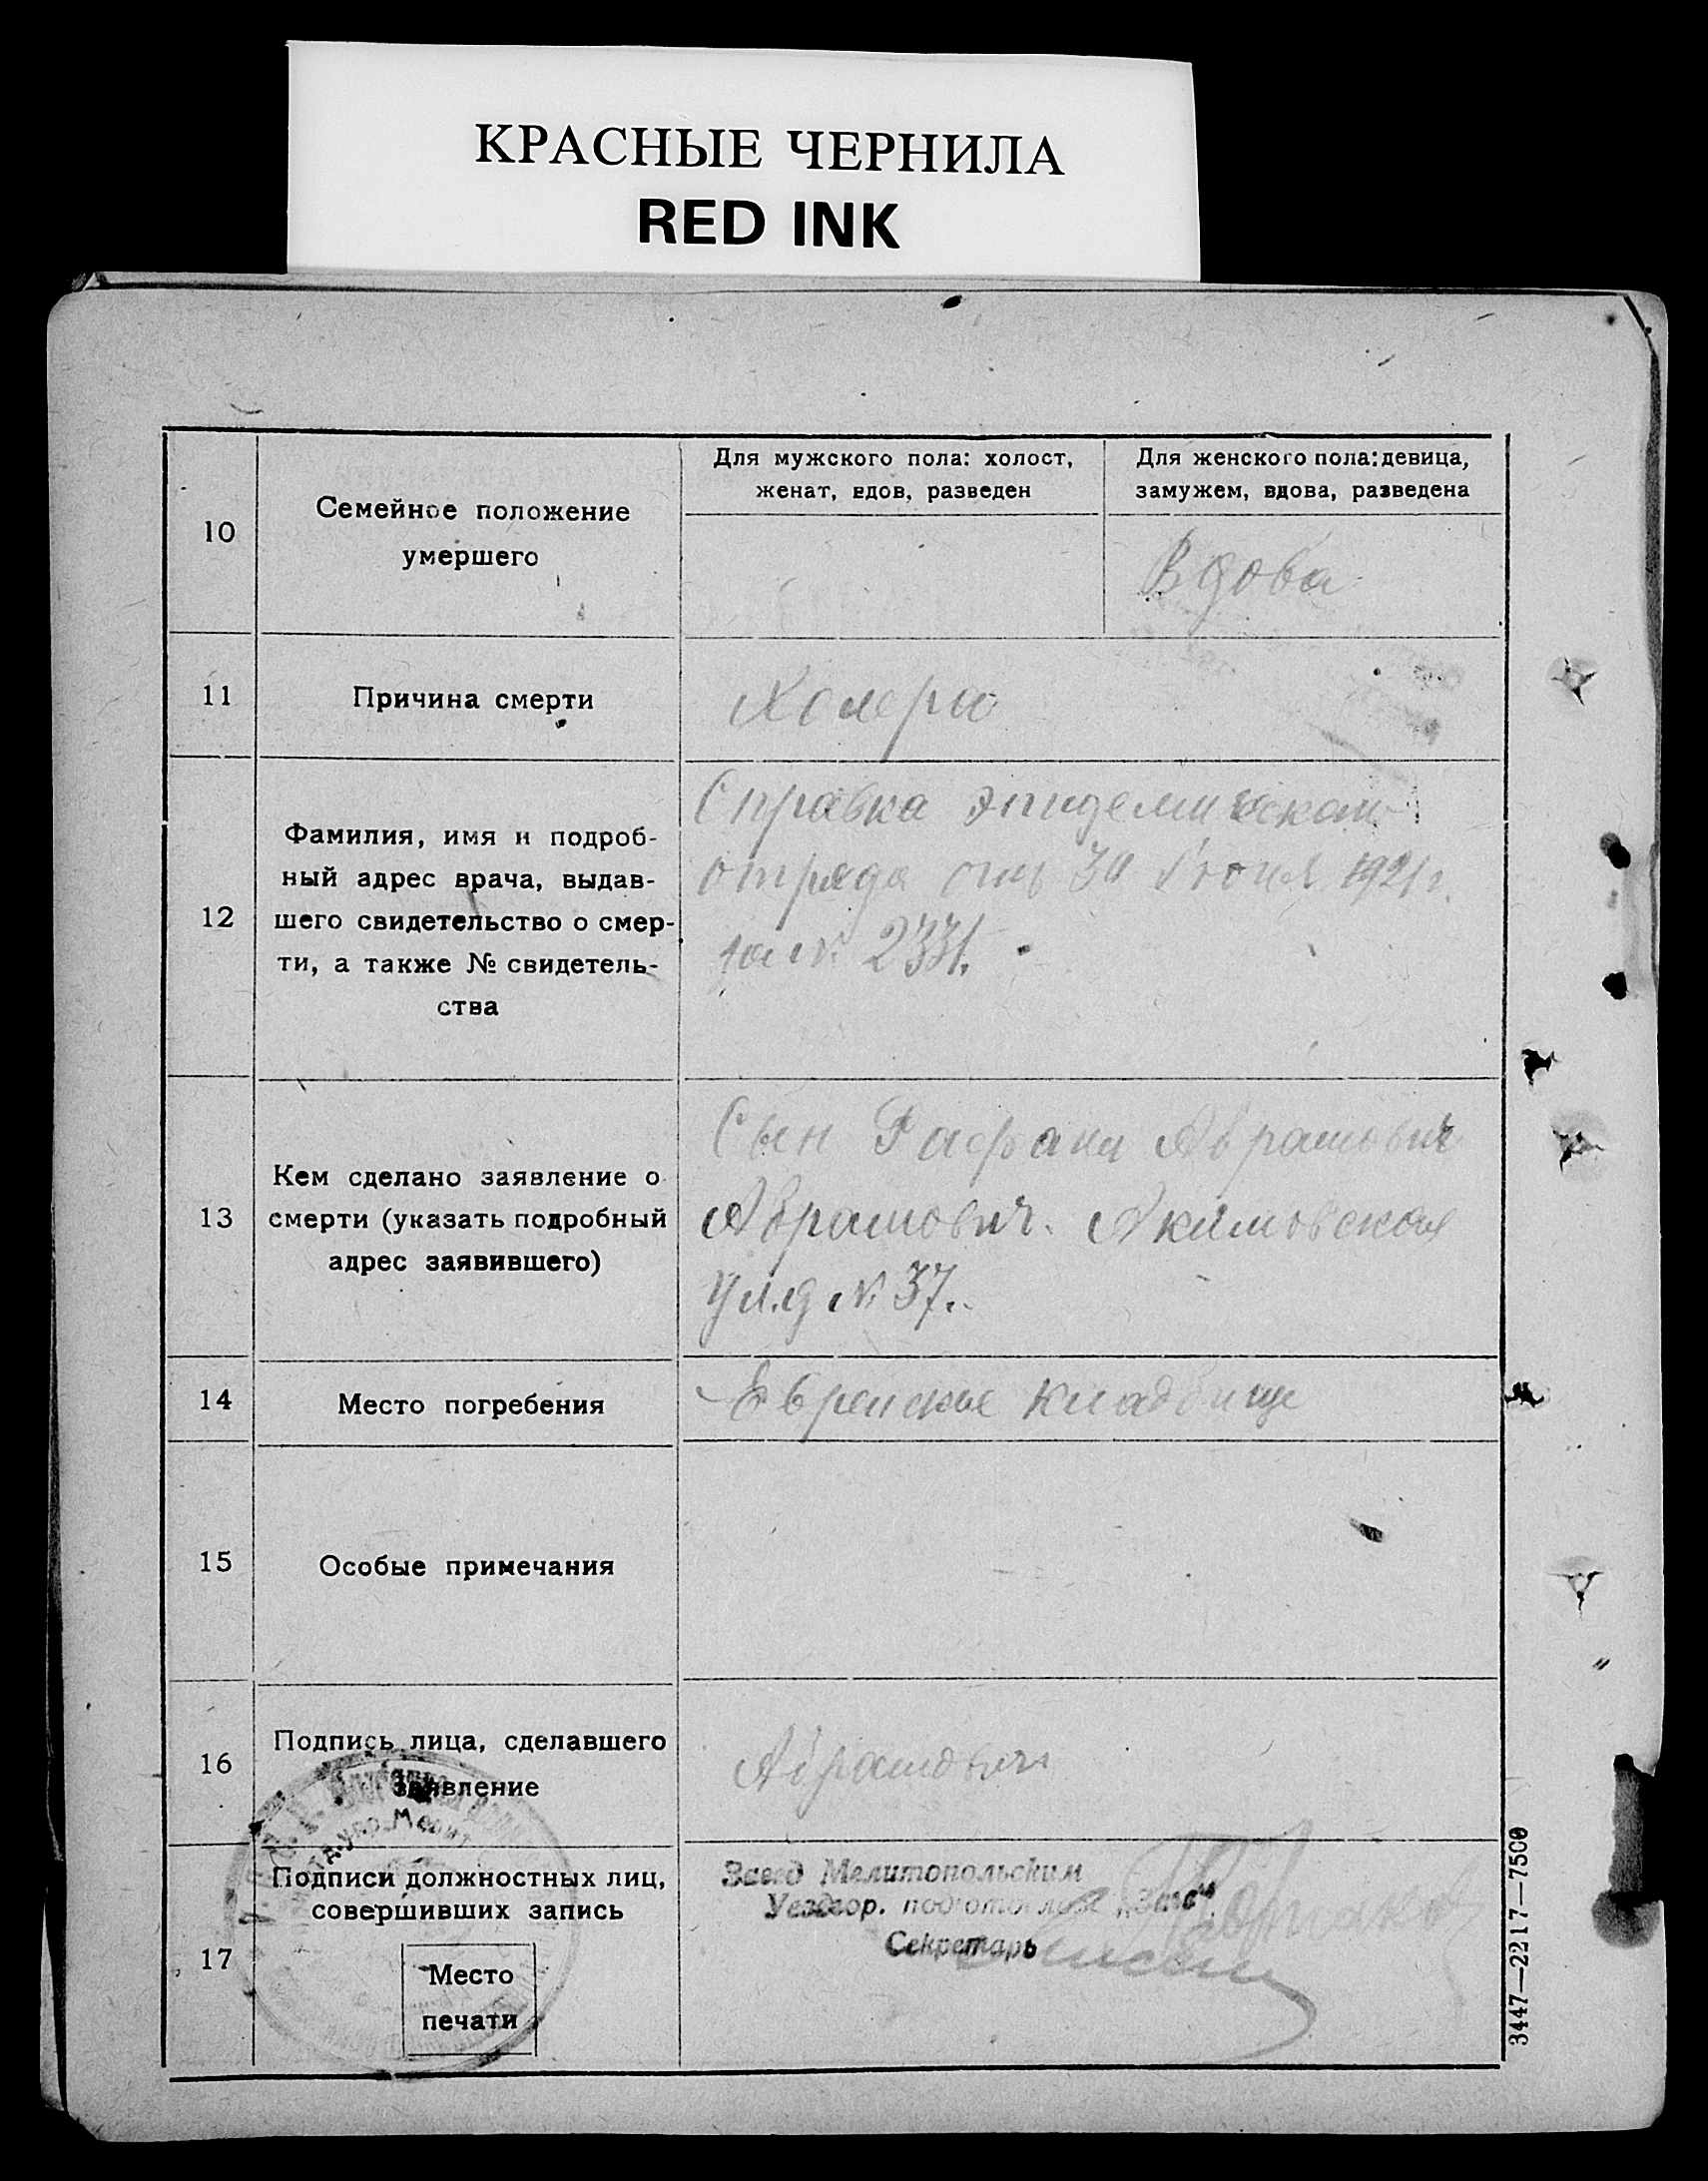 КРАСНЫЕ ЧЕРНИЛА
RED INK
10
Семейное положение
умершего
Для мужского пола: холост,
женат, вдов, разведен
Для женского пола: девица,
замужем, вдова, разведена
Вдова
11
Причина смерти
Холера
12
Фамилия, имя и подроб-
ный адрес врача, выдав-
шего свидетельство о смер-
ти, а также № свидетель-
ства
Справка эпидемическаго
отряда отъ 30 Июня 1921 г.
за № 2331.
13
Кем сделано заявление о
смерти (указать подробный
адрес заявившего)
Сын Рафаил Абрамович
Абрамович. Акимовская
ул. д № 37.
14
Место погребения
Еврейское кладбище
15
Особые примечания
16
Подпись лица, сделавшего
заявление
Абрамович
17
Подписи должностных лиц,
совершивших запись
Место
печати
Завед Мелитопольским
Уездгор. подотделом „Загс“
Секретарь
3447—2217—7500